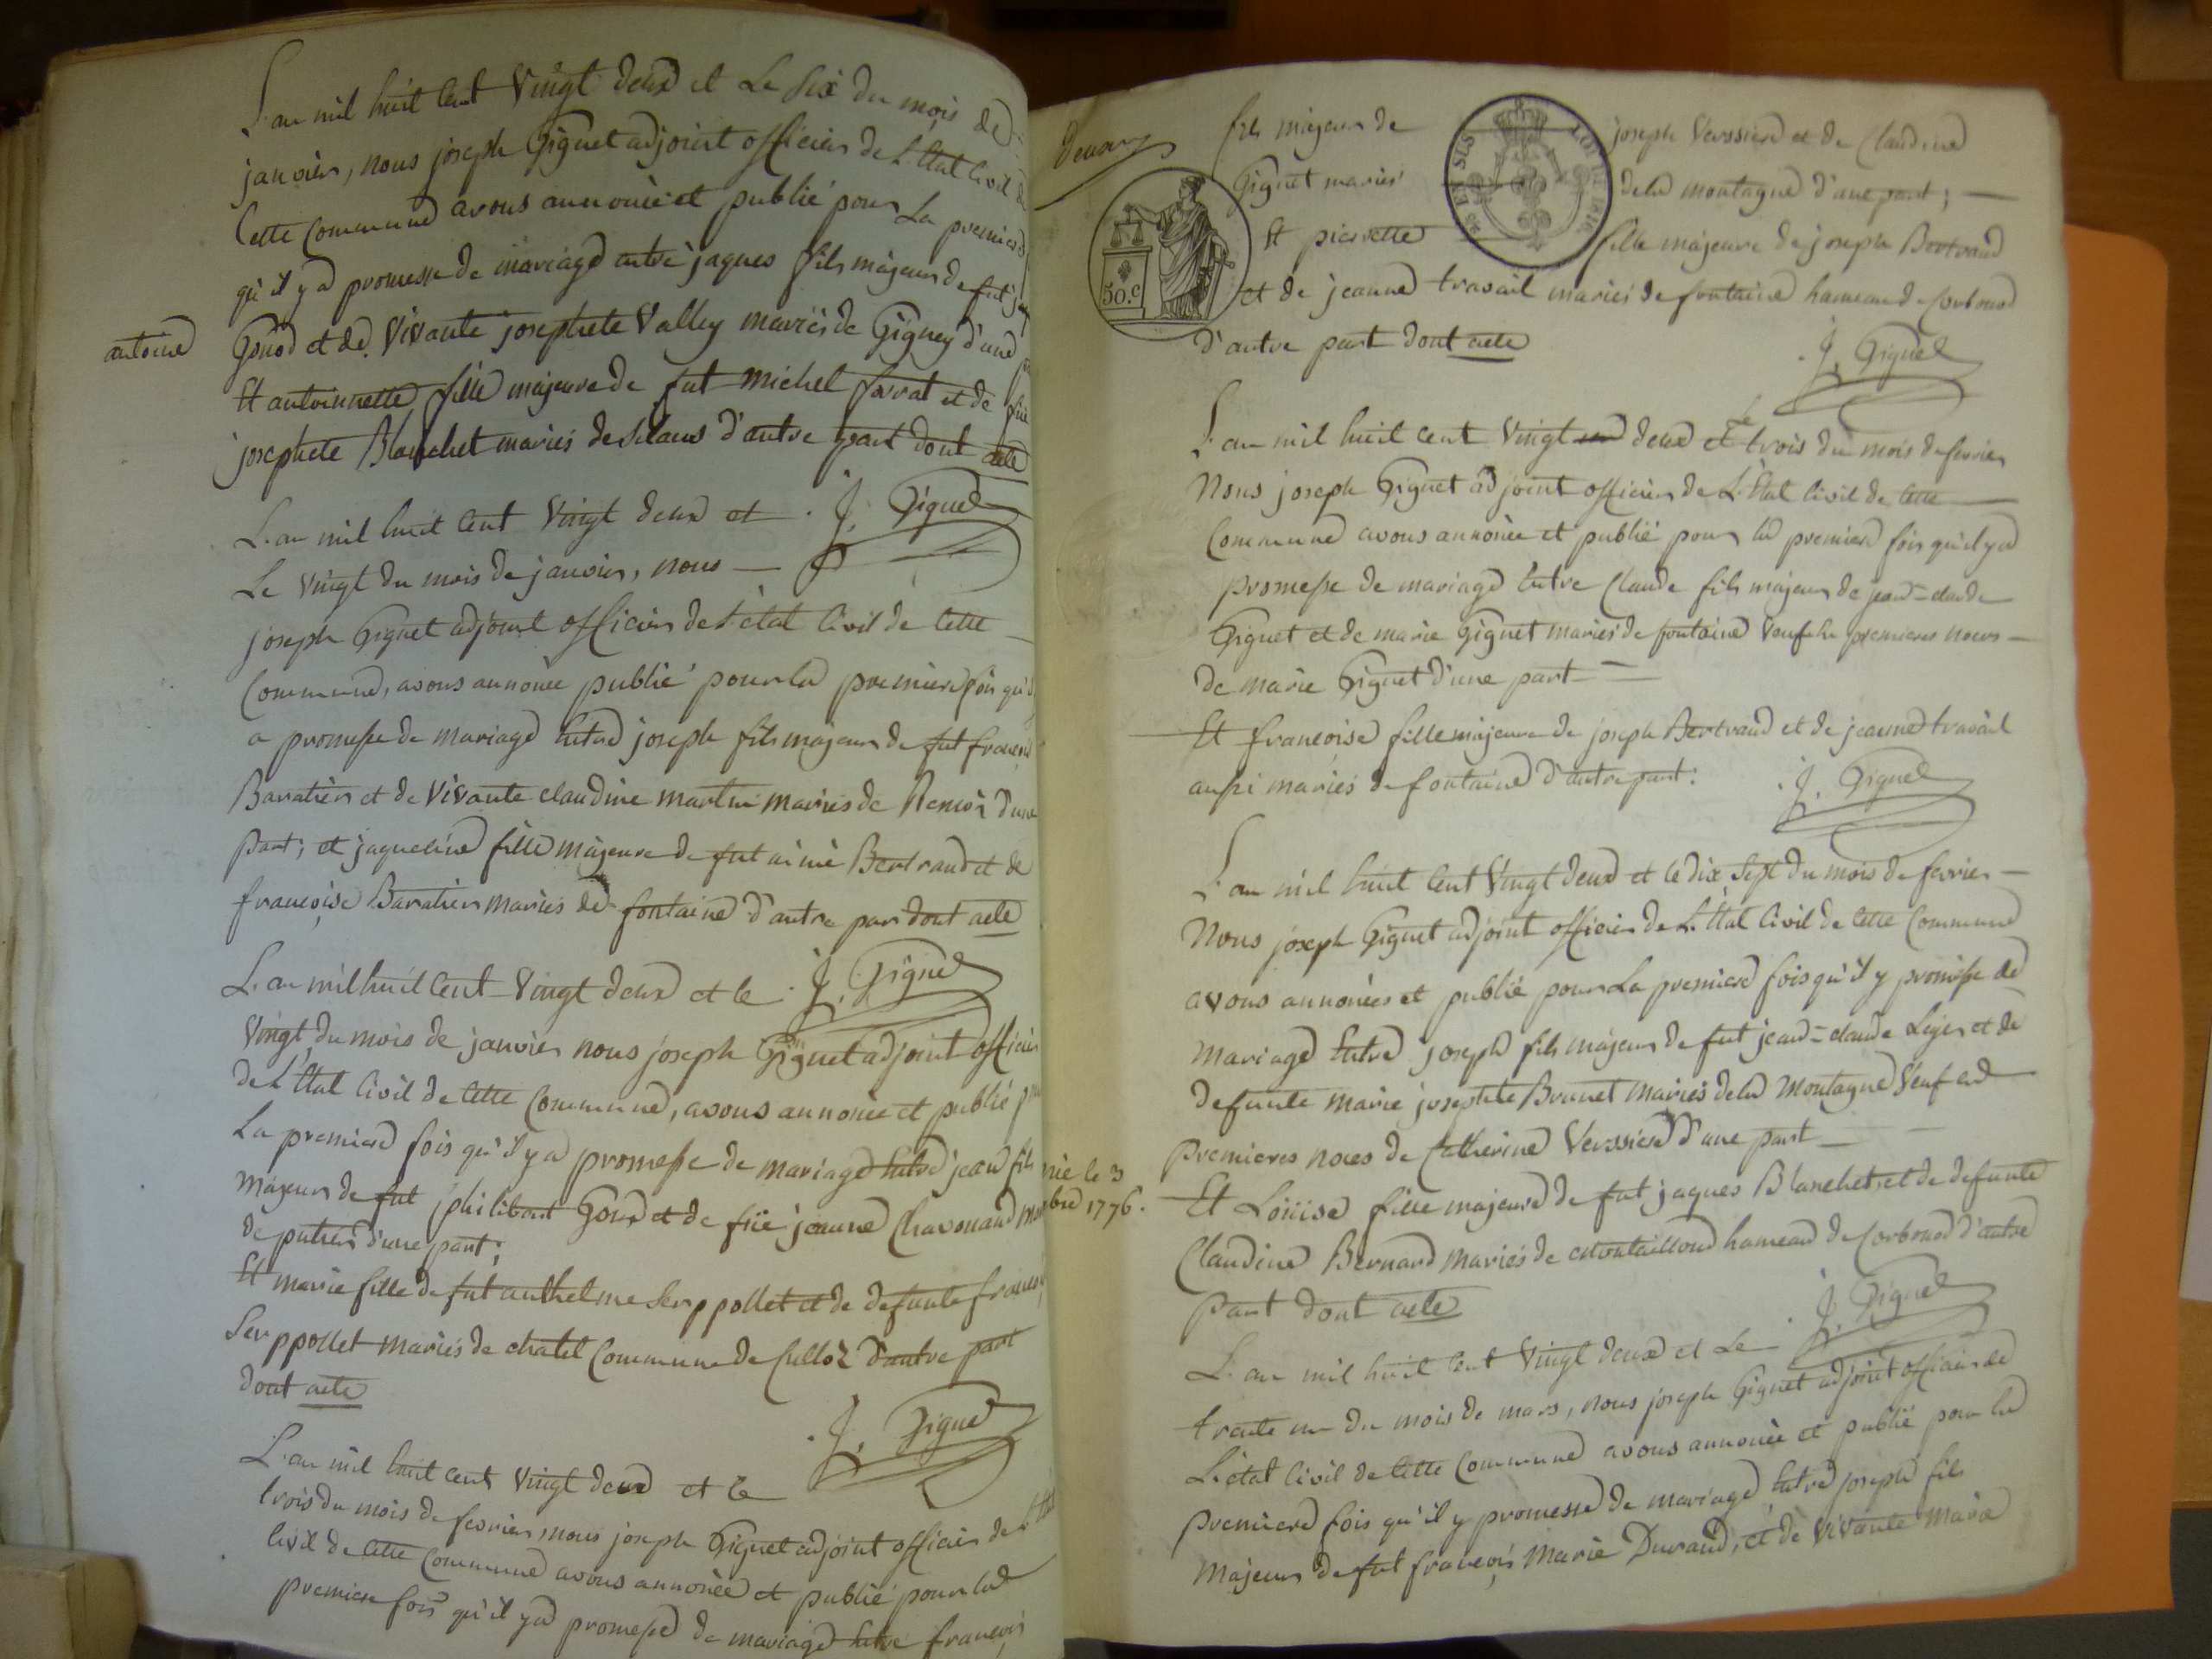 L'an mil huit cent vingt deux et le six du mois de
janvier, nous joseph Giguet adjoint officier de L'Etat Civil d
Cette Commune avons annoncé et publié pour La premiere
qu'il y a promesse de mariage entre jaques fils majeur de fut
antoine
Gonod et de vivante josephete Valley mariés de Gigney d'une
Et antoinnette fille majeure de fut michel favrat et de fue
josephete Blanchet mariés de Silans d'autre part dont acte
J. Giguet
L'an mil huit cent vingt deux et
Le vingt du mois de janvier, nous
joseph Giguet adjoint officier de l'état Civil de cette
Commune, avons annonée publié pour la premiere fois qu'il
a promesse de mariage entre joseph fils majeur de fut françois
Baratier et de vivante claudine martin mariés de d'une
part; et jaqueline fille majeure de fut aimé Bertrand et de
françoise Baratier mariés de fontaine d'autre par dont acte
J. Giguet
L'an mil huit cent vingt deux et le
vingt du mois de janvier nous joseph Giguet adjoint officier
de L'Etat Civil de cette Commune, avons annonée et publié
La premiere fois qu'il y a promesse de mariage entre jean fils
majeur de fut philibert Goux et de füe jeanne Chavonand
de d'une part;
Et marie fille de fut anthelme Serppollet et de defunte
Serppollet mariés de chatel Commune de Culloz d'autre part
dont acte
J. Giguet
L'an mil huit cent vingt deux et le
trois du mois de fevrier, nous joseph Giguet adjoint officier de
Civil de cette Commune avons annonée et publié pour la
premiere fois qu'il y a promesse de mariage entre françois
née le 3
bre 1776.
deux
fils majeur de joseph Verssiere et de Claudine
Giguet mariés dela montagne d'une part;
Et pierrette fille majeure de joseph Bertrand
et de jeanne travail mariés de fontaine hameau de Corbonod
d'autre part dont acte
50.c
J. Giguet
L'an mil huit cent vingt deux et le trois du mois de fevrier
Nous joseph Giguet adjoint officier de L'Etat Civil de cette
Commune avons annonée et publié pour la premiere fois qu'il y a
promesse de mariage entre Claude fils majeur de jean=claude
Giguet et de marie Giguet mariés de fontaine Veuf de premieres noces
de marie Giguet d'une part
Et françoise fille majeure de joseph Bertrand et de jeanne travail
aussi mariés de fontaine d'autre part.
J. Giguet
L'an mil huit cent vingt deux et le dix sept du mois de fevrier
Nous joseph Giguet adjoint officier de L'Etat Civil de cette Commune
avons annonées et publié pour La premiere fois qu'il y promesse de
mariage entre joseph fils majeur de fut jean=claude Leger et de
defunte marie josephte Brunet mariés dela montagne Veuf en
premieres noces de Catherine Verssiere d'une part
Et Loüise fille majeure de fut jaques Blanchet, et de defunte
Claudine Bernard mariés de hameau de Corbonod d'autre
part dont acte
J. Giguet
L'an mil huit cent vingt deux et Le
trente un du mois de mars, nous joseph Giguet adjoint officier de
L'état Civil de cette Commune avons annonée et publié pour la
premiere fois qu'il y promesse de mariage entre joseph fils
majeur de fut françois marie Durand, et de vivante marie